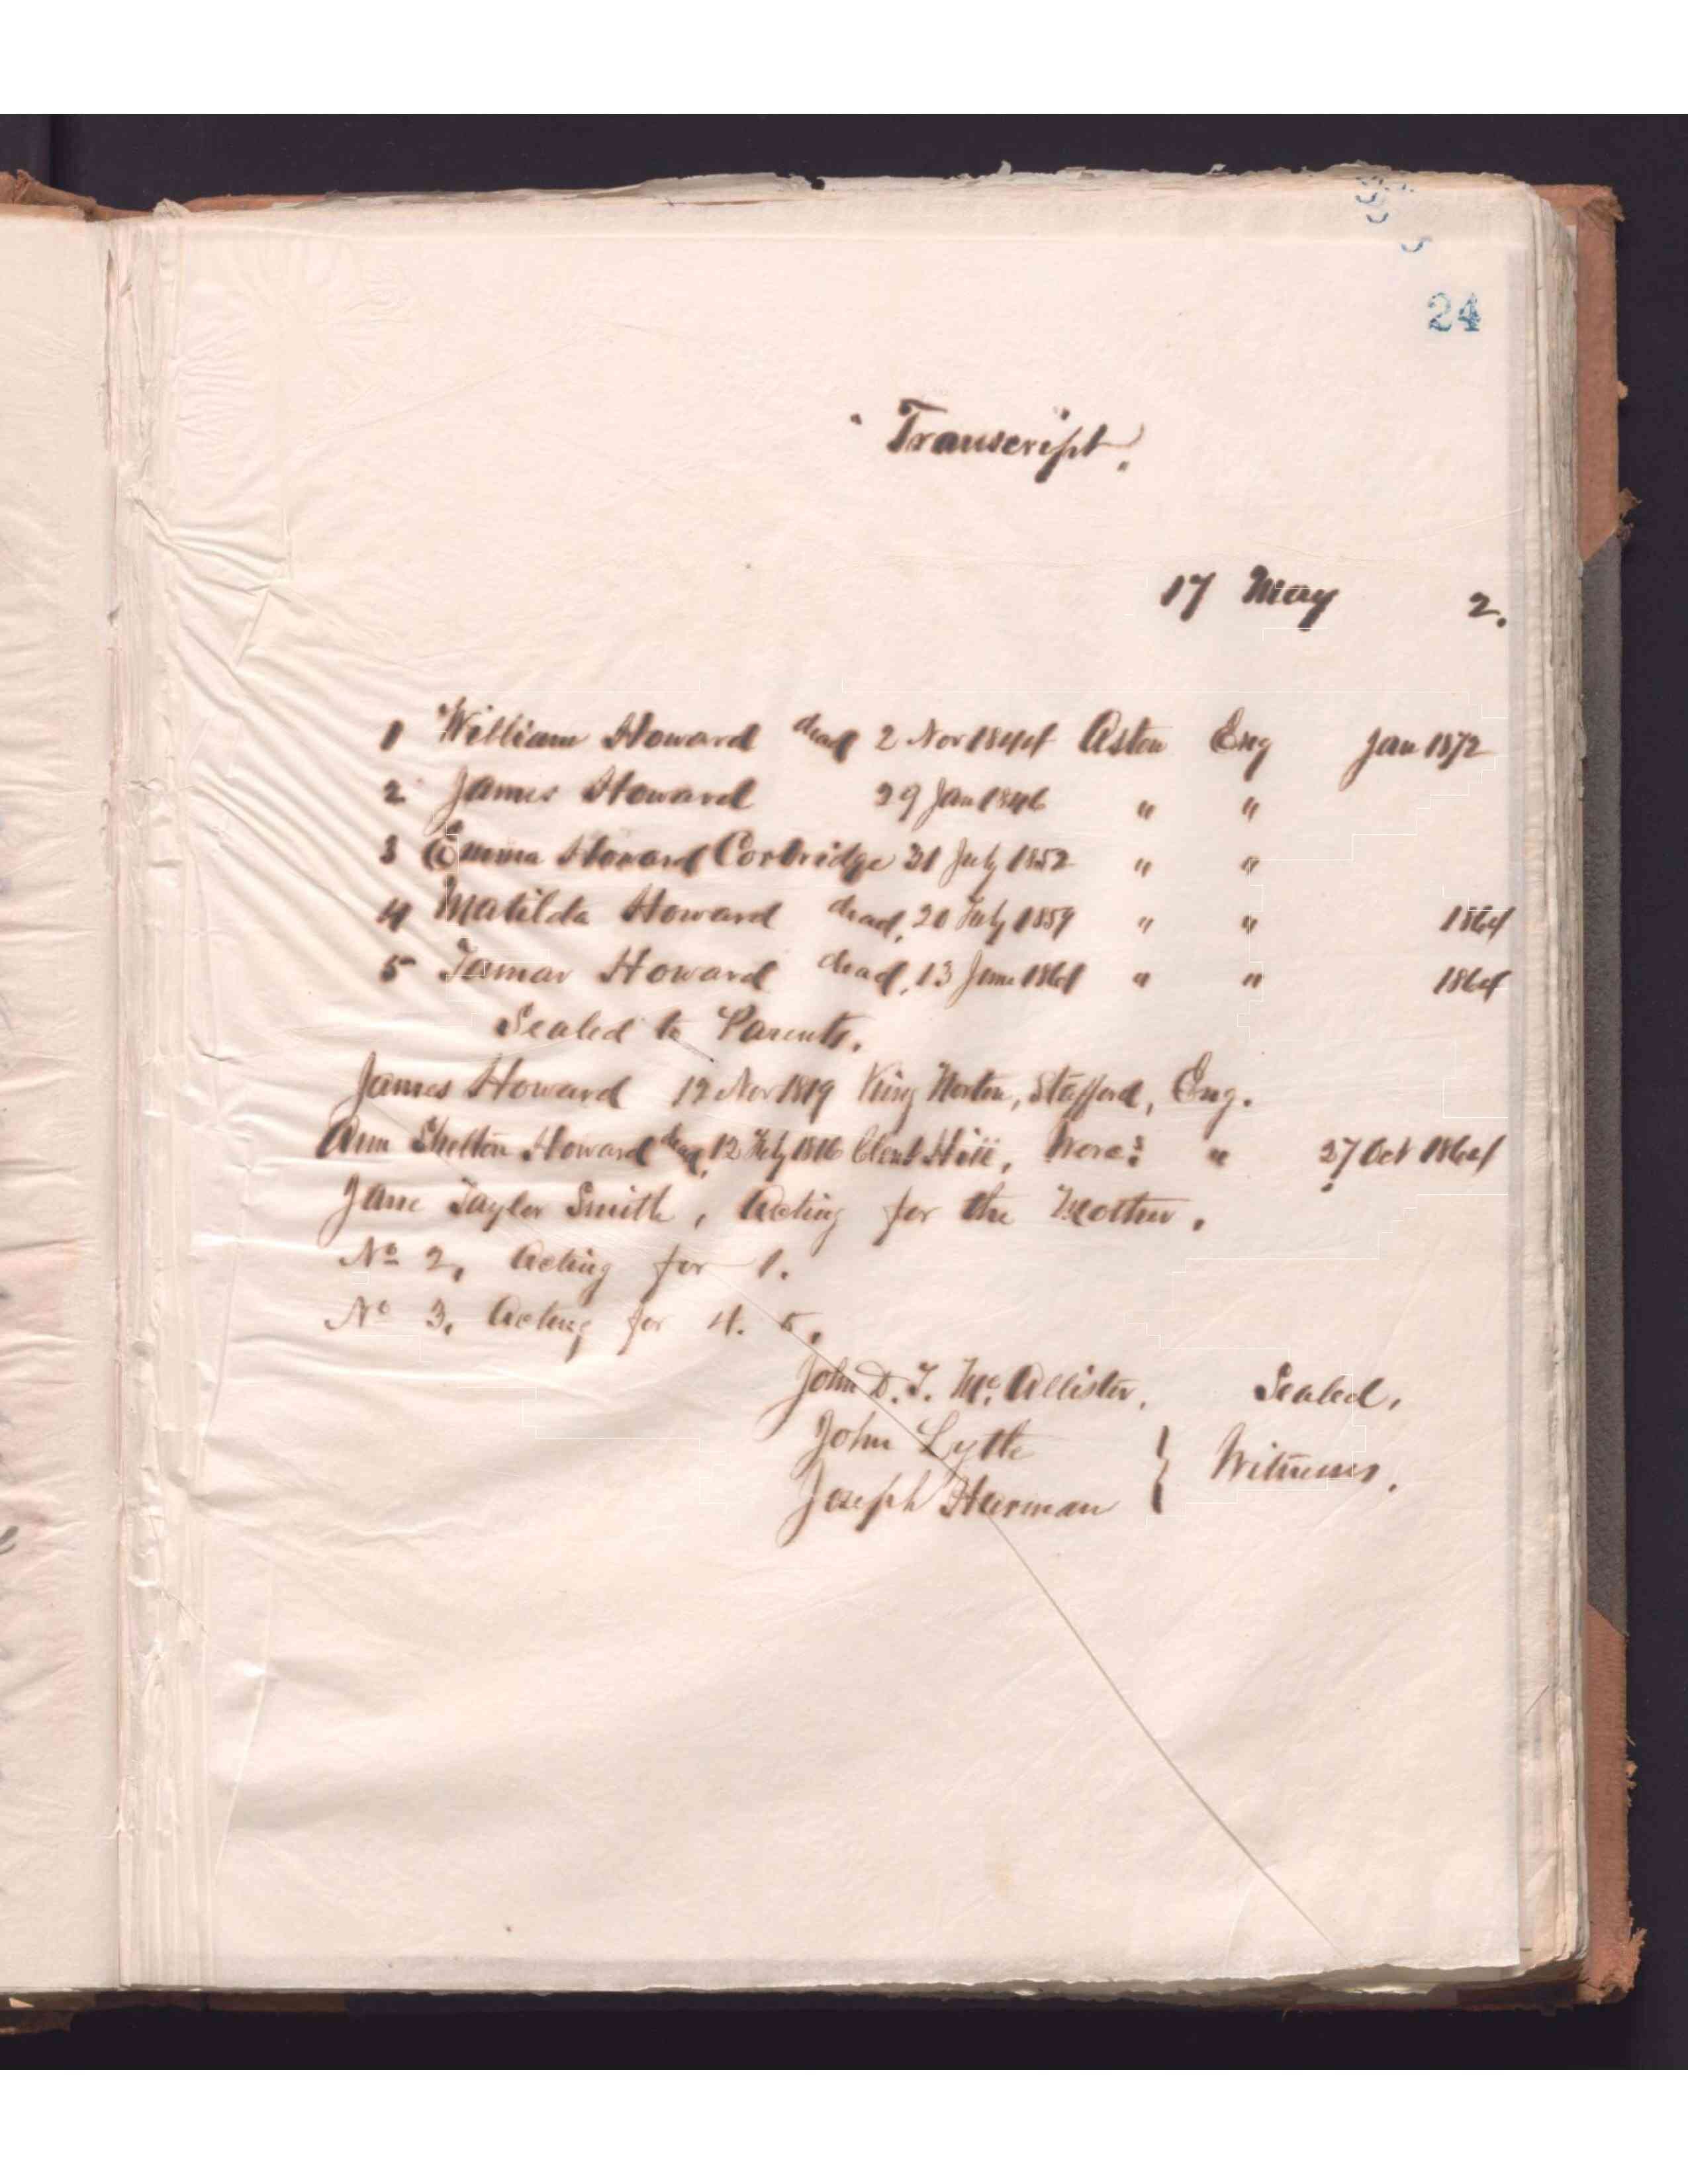 24
Transcript.
17 May 2.
1 William Howard dead 2 Nov 1844 Aston Eng Jan 1872
2 James Howard 29 Jan 1846 " "
3 Emma Howard Corbridge 31 July 1852 " "
4 Matilda Howard dead, 20 July 1859 " " 1864
5 Tamar Howard dead, 13 June 1864 " " 1864
Sealed to Parents.
James Howard 12 Nov 1819 King Norton, Stafford, Eng.
Ann Shelton Howard dead, 12 1816 Clent Hill, " 27 Oct 1864
Jane Taylor Smith, Acting for the Mother.
No 2, Acting for 1.
No 3. Acting for 4. 5.
John D. T. Mc.Allister, Sealed,
John Lytle
Joseph Hurman } Witnesses.